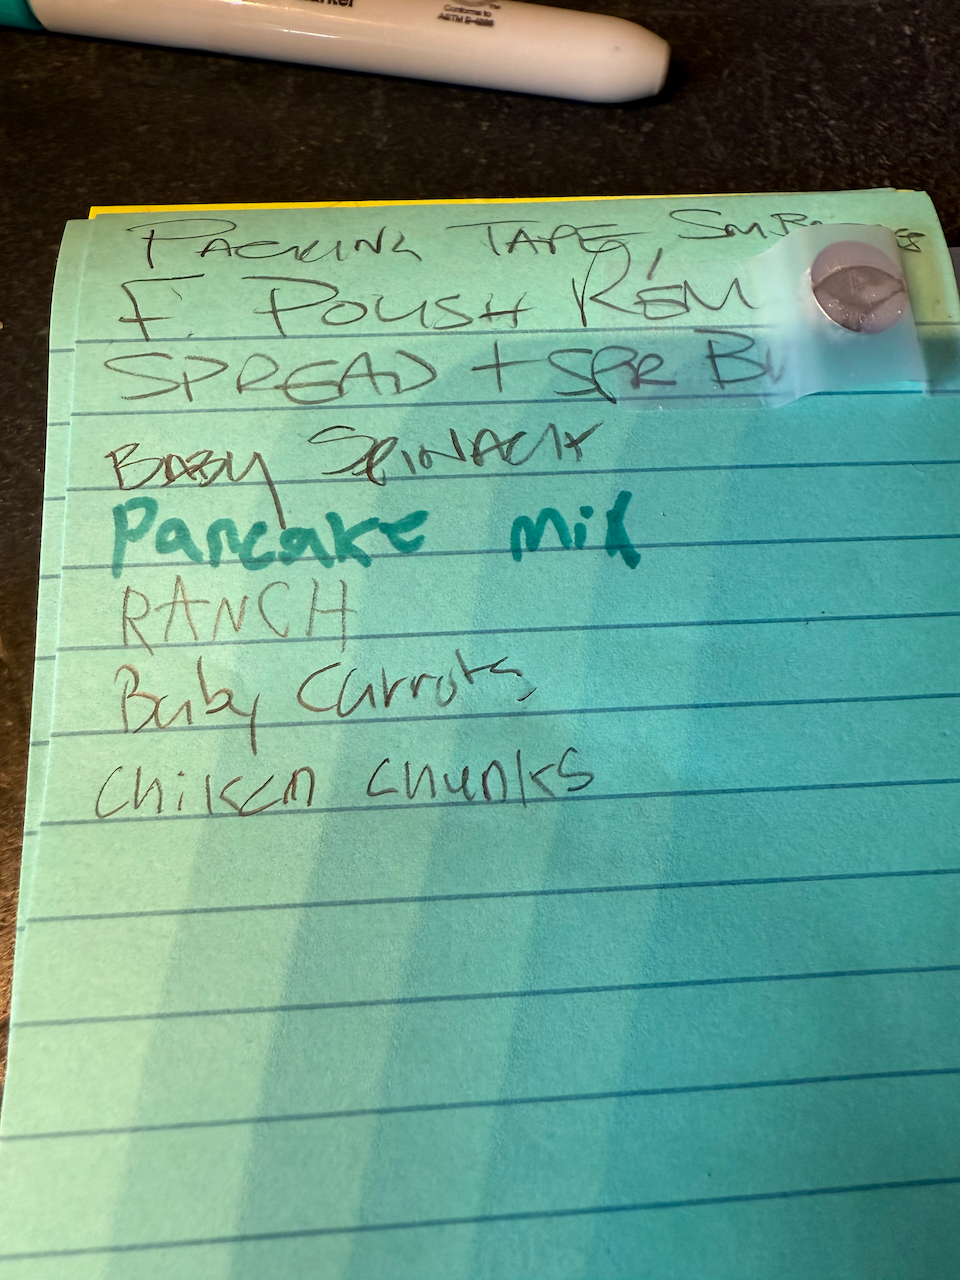 Conforms to
ASTM D-4236
PACKING TAPE, SM
F. POLISH REM
SPREAD + SPR BU
BABY SPINACH
Pancake mix
RANCH
Baby Carrots
Chiken Chunks